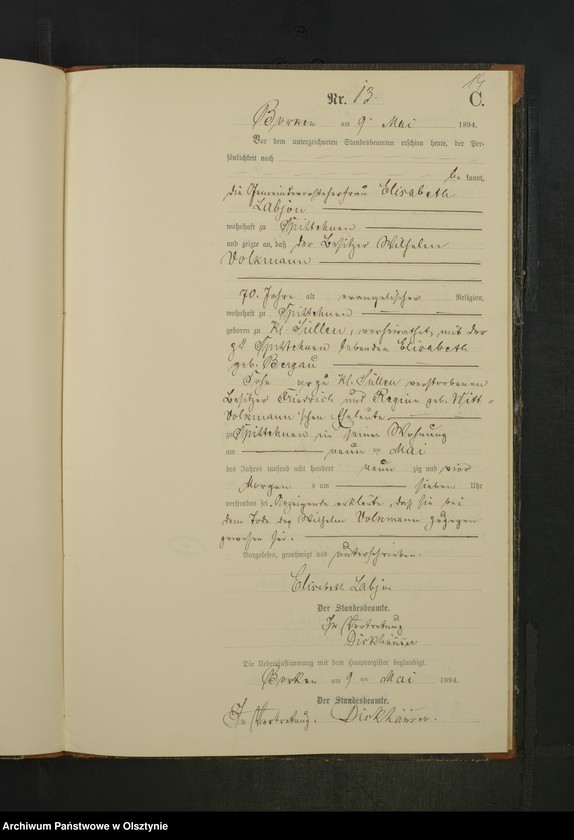 14
Nr. 13. C.
Borken am 9ten Mai 1894.
Vor dem unterzeichneten Standesbeamten erschien heute, der Per-
sönlichkeit nach
be kannt,
die Gemeindevorsteherfrau Elisabeth
Labjon
wohnhaft zu Spittehnen
und zeigte an, daß der Besitzer Wilhelm
Volkmann
70. Jahre alt evangelischer Religion,
wohnhaft zu Spittehnen
geboren zu Kl. Sullen, verheirathet mit der
zu Spittehnen lebenden Elisabeth
geb. Bergau
Sohn der zu Kl. Sullen verstorbenen
Besitzer Friedrich und Regine geb. Witt-
Volkmann'schen Eheleute
zu Spittehnen in seiner Wohnung
am neun ten Mai
des Jahres tausend acht hundert neun zig und vier
Morgens um sieben Uhr
verstorben sei. Anzeigende erklärte, daß sie bei
dem Tode des Wilhelm Volkmann zugegen
gewesen sei.
Vorgelesen, genehmigt und unterschrieben.
Elisabeth Labjon
Der Standesbeamte.
In Vertretung
Dickhäuser
Die Uebereinstimmung mit dem Hauptregister beglaubigt
Borken am 9 ten Mai 1894.
Der Standesbeamte.
In Vertretung. Dickhäuser.
Archiwum Państwowe w Olsztynie